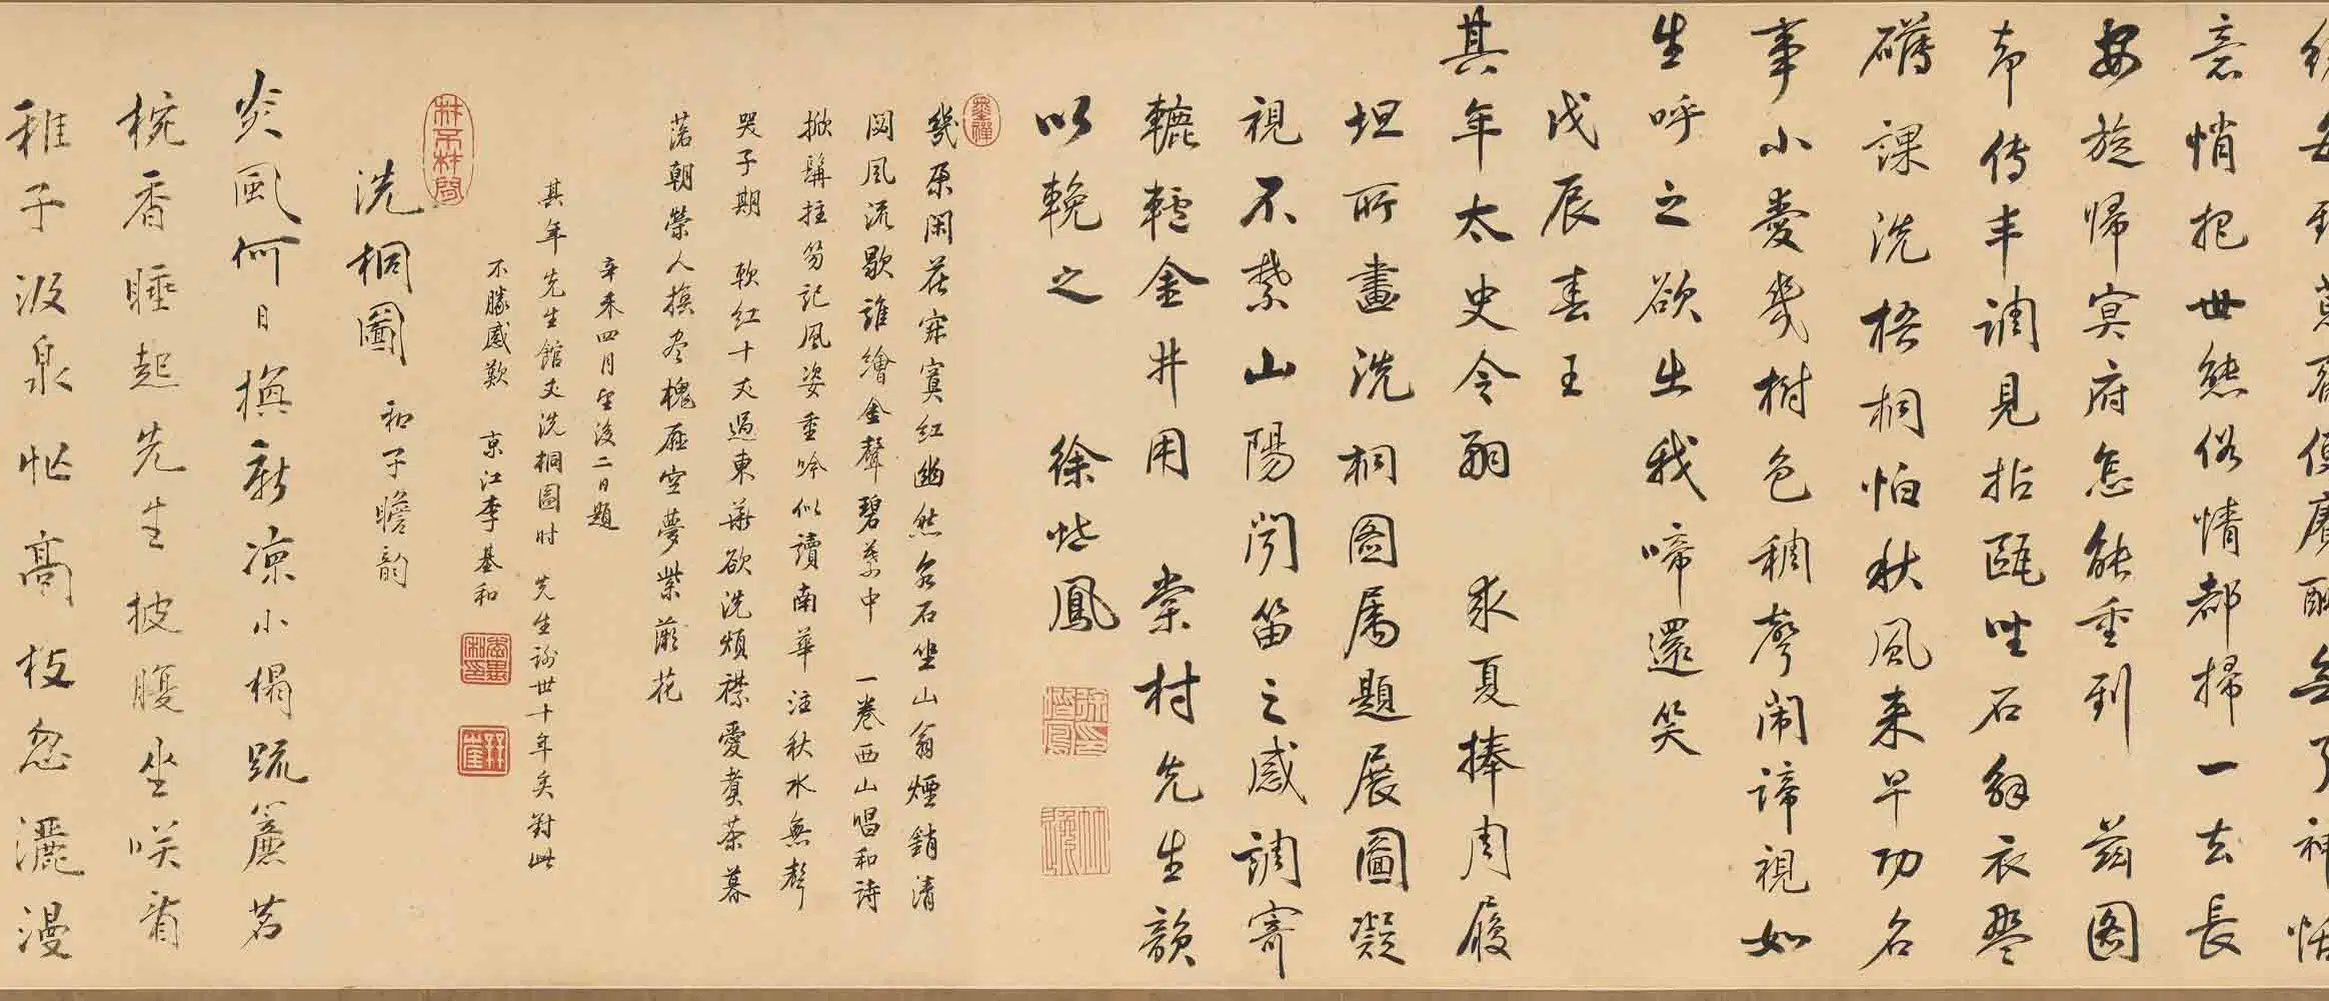 意悄抱世態俗情都掃一去長
安旋歸冥府怎能重到茲图
布传丰調見拈甌坐石解衣磐
礴課洗梧桐怕秋風来早功名
事小爱幾樹色稠聲闹諦視如
生呼之欲出我啼還笑
戊辰春王
其年太史令嗣求夏捧周履
坦所畫洗桐图属題展圖凝
視不禁山陽闻笛之感調寄
轆轤金井用棠村先生韻
以輓之 徐喈鳳
幾朵闲花寂寞红幽然泉石坐山翁煙銷清
閟風流歇誰繪金聲碧蕖中 一卷西山唱和诗
掀髯拄笏記風姿重吟似讀南華注秋水無聲
哭子期 軟红十丈過東華欲洗煩襟愛煑茶暮
落朝榮人換尽槐𢊍空夢紫薇花
辛未四月望後二日題
其年先生館丈洗桐圖时先生谢世十年矣對此
不勝感歎 京江李基和
洗桐圖 和子瞻韵
炎風何日換新凉小榻疏簾茗
椀香睡起先生披腹坐咲看
稚子汲泉忙高枝忽灑漫